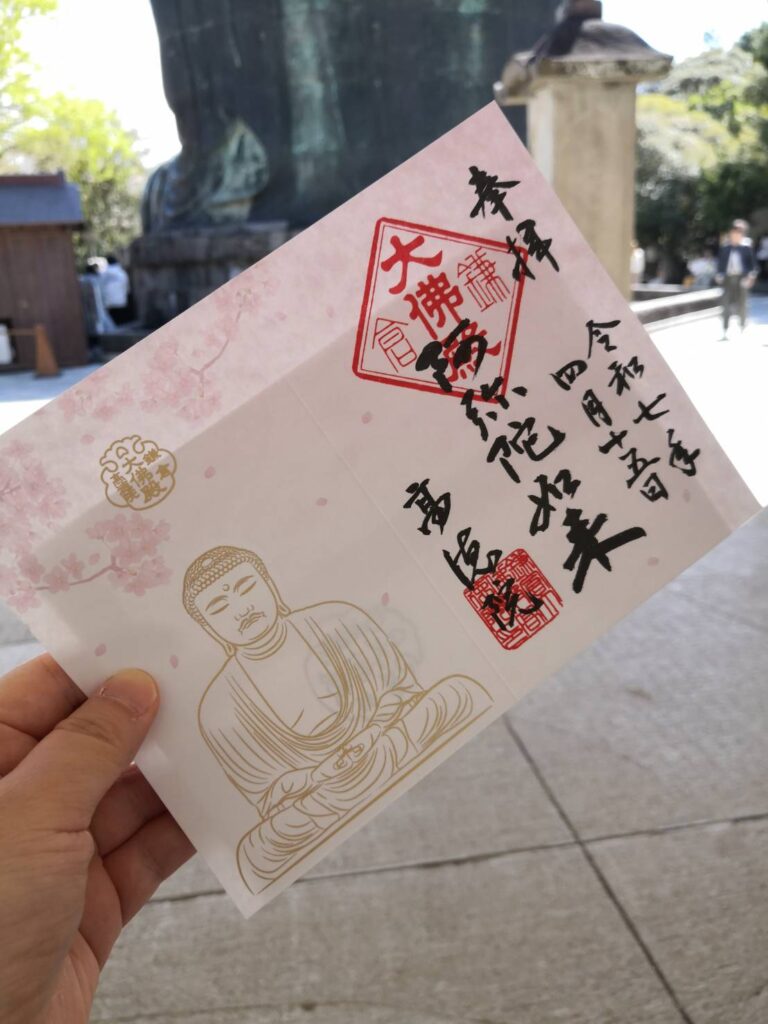 奉拝
令和七年
四月十五日
鎌倉
大佛殿
阿弥陀如来
高徳院
鎌倉
大佛殿
高徳院